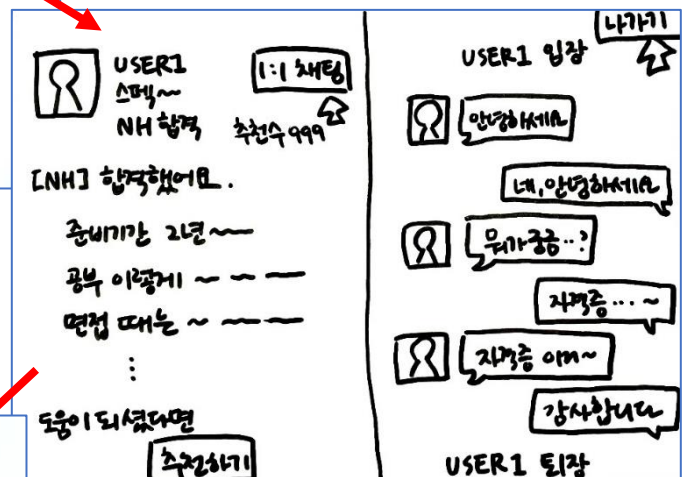 USER1
스펙~
NH 합격
1:1 채팅
추천수 999
[NH] 합격했어요.
준비기간 2년~~
공부 이렇게 ~ ~ ~
면접 때는 ~ ~ ~
⋮
도움이 되셨다면
추천하기
나가기
USER1 입장
안녕하세요
네, 안녕하세요
뭐가 궁금..?
자격증 ... ~
자격증 어쩌~
감사합니다
USER1 퇴장